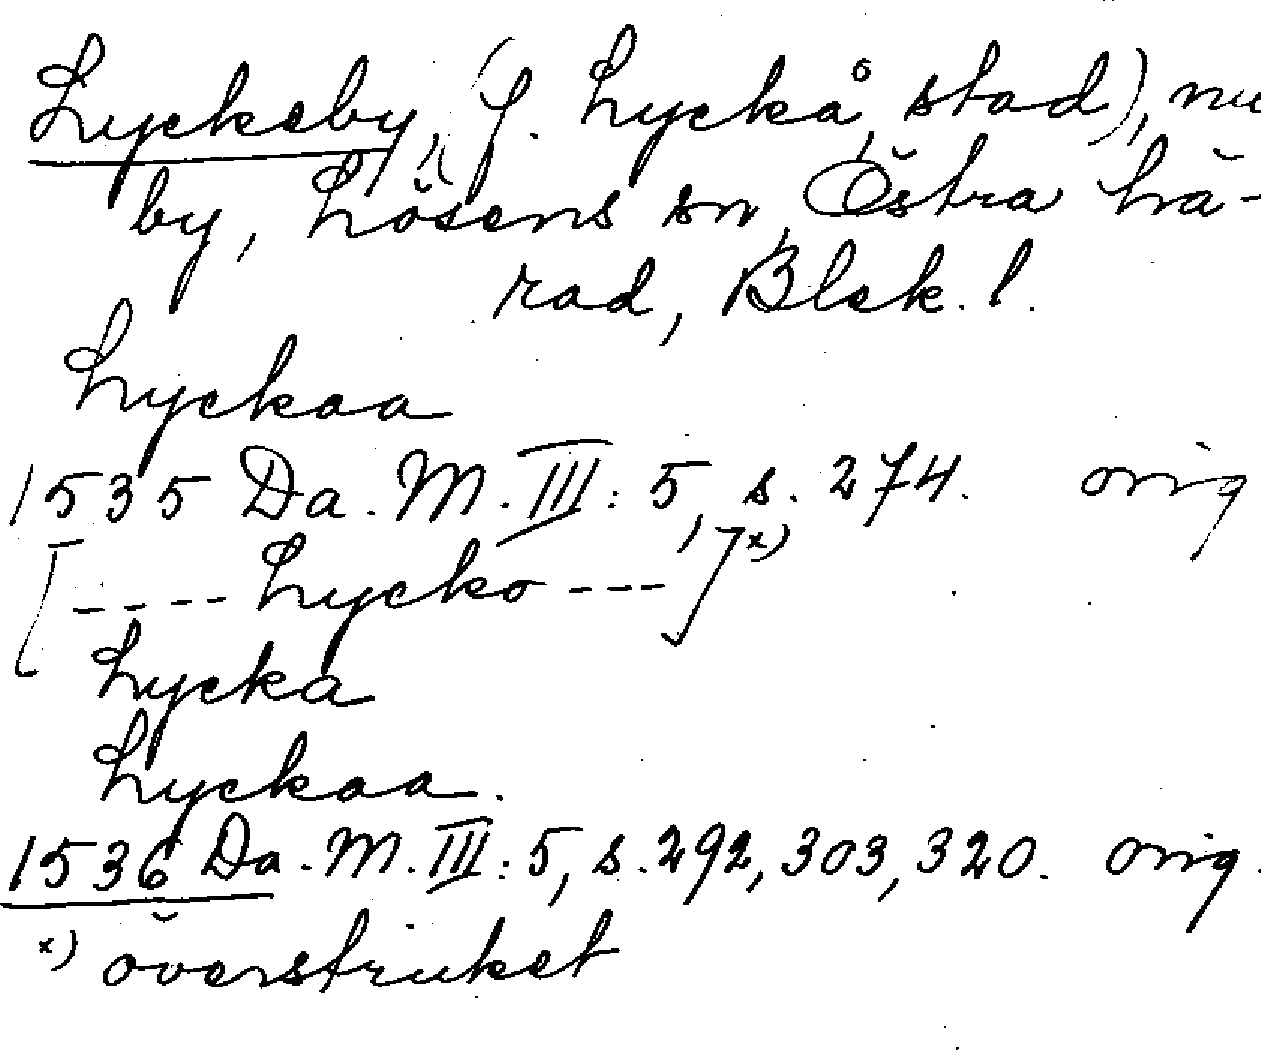 Lyckeby, (f. Lyckå, stad), nu
by, Lösens sn, Östra hä-
rad, Blek. l.
Lyckaa
1535 Da. M. III: 5, s. 274. orig
[---- Lycko ---]x)
Lycka
Lyckaa.
1536 Da. M. III: 5, s. 292, 303, 320. orig.
x) överstruket